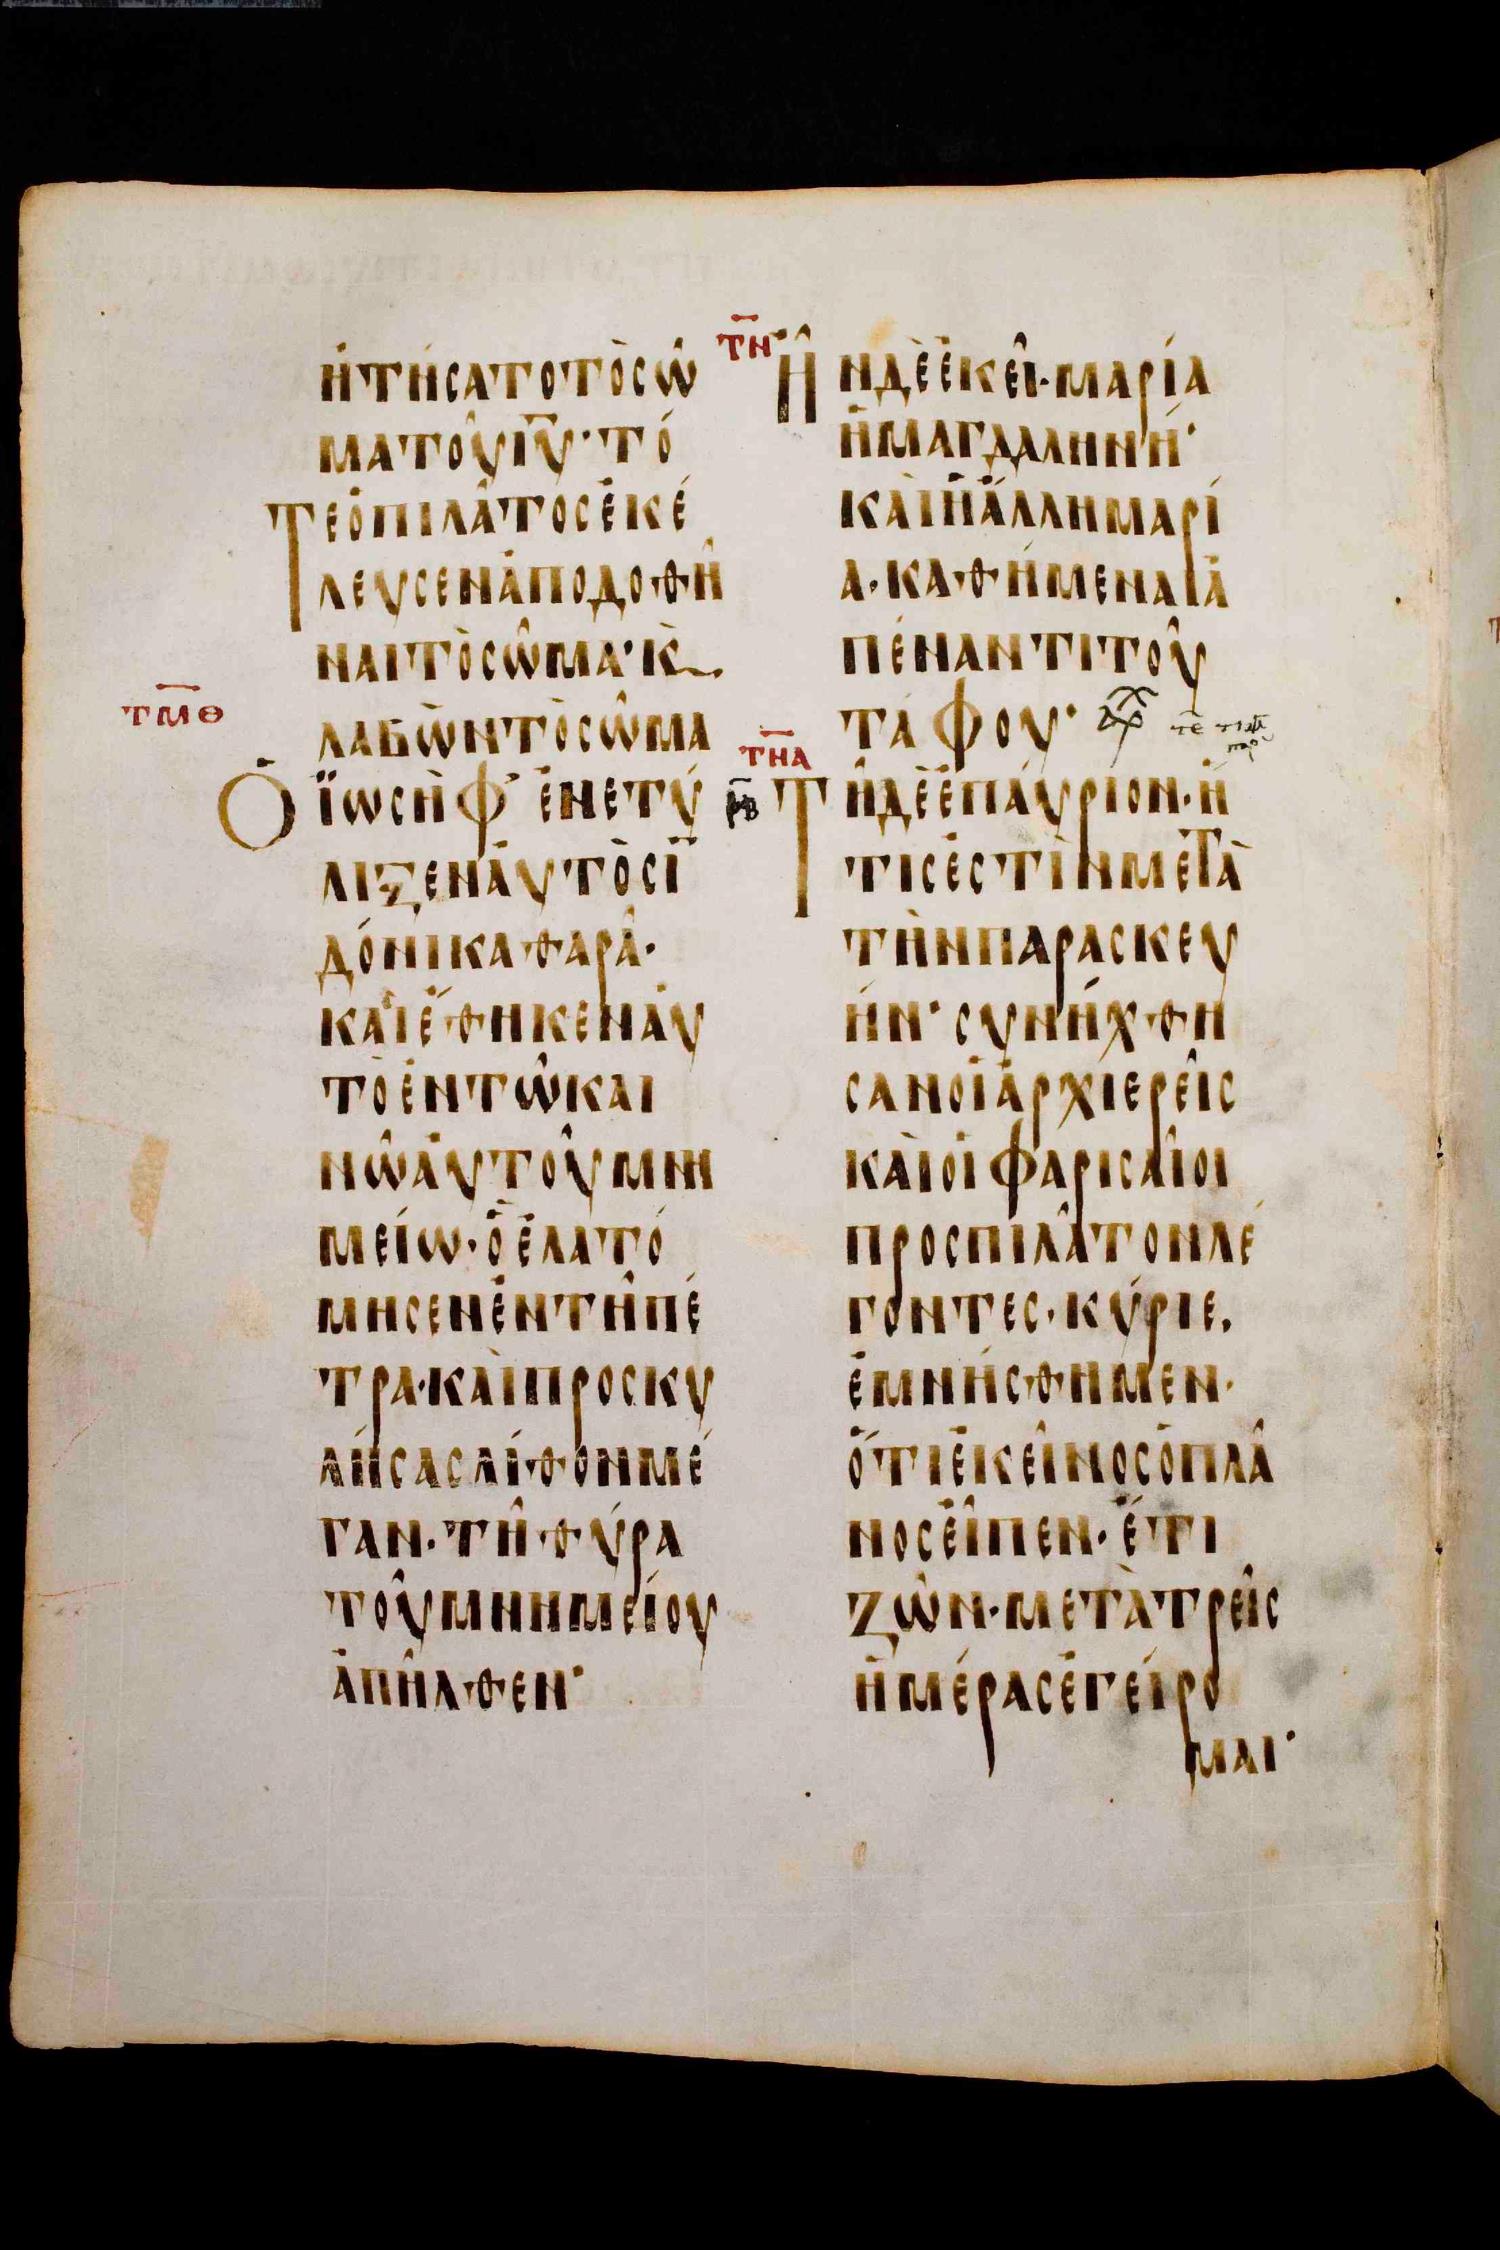 ἠτήσατοτὸσῶ
ματοῦΙῦ· τό
Τεὁπιλᾶτοσἐκέ
λευσενἀποδοθῆ
ναιτὸσῶμα· κ̀
ΤΜΘ
λαβὼντὸσῶμα
Ὁἰωσὴφ ἐνετύ
λιξεναὐτὸσι
δόνικαθαρᾶ·
καὶἔθηκεναὐ
τοἐντῶκαι
νῶἀυτοῦμνη
μείω· ὃἐλατό
μησενἐντῆπέ
τρα· καὶπροσκυ
λήσασλίθονμέ
γαν· τῆθύρα
τοῦμνημείου
ἀπῆλθεν·
ΤΝ
Ἦνδὲἐκεῖ· μαρία
ἡμαγδαληνή·
καὶἡἄλλημαρί
α· καθήμεναιἀ
πέναντιτοῦ
τάφου·
ΤΝΑ
Τῆδὲἐπάυριον· ἥ
τισἐστὶνμετὰ
τὴνπαρασκευ
ήν· συνήχθη
σανοἱἀρχιερεῖς
καὶοἱφαρισαῖοι
προσπιλᾶτονλέ
γοντες· κύριε,
ἐμνήσθημεν·
ὅτιἐκεῖνοσὁπλᾶ
νοσεἶπεν· ἔτι
ζῶν· μετὰτρεῖς
ἡμέρασἐγείρο
μαι·